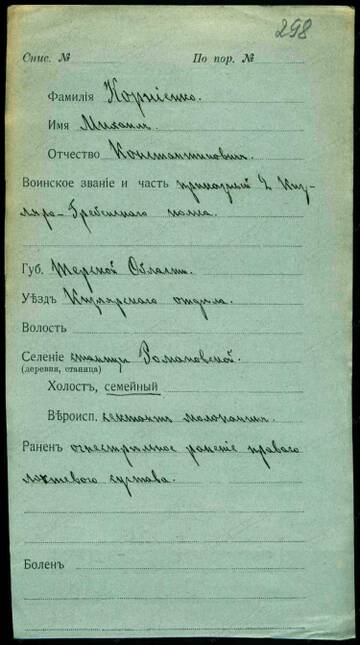 298
Спис. № По пор. №
Фамилія Корніенко.
Имя Михаилъ
Отчество Константиновичъ.
Воинское званіе и часть приказный 2 Киз-
ляро-Гребенского полка.
Губ. Терской Области.
Уѣздъ Кизлярского отдѣла.
Волость
Селеніе станицы Романовской.
(деревня, станица)
Холостъ, семейный
Вѣроисп. сектантъ молоканинъ.
Раненъ огнестрѣльное раненіе праваго
локтевого сустава.
Боленъ